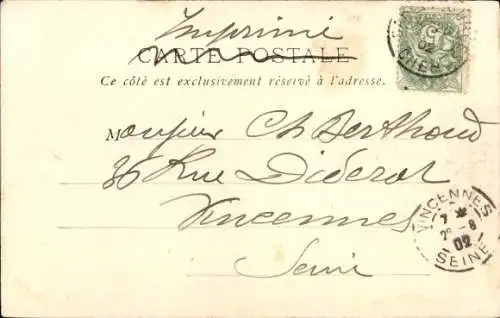 Imprimé
CARTE POSTALE
Ce côté est exclusivement réservé à l'adresse.
Monsieur Ch Berthoud
36 Rue Diderot
Vincennes
Seine
VINCENNES
7
2e - 8
02
SEINE
5
02
CHER